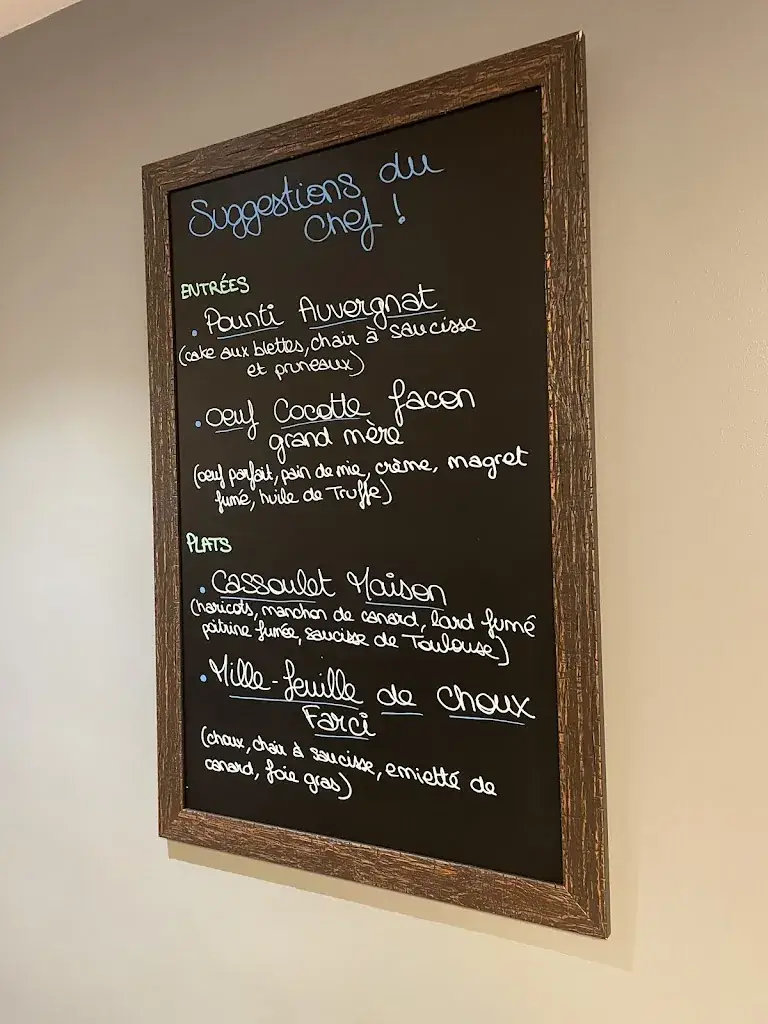 Suggestions du
chef !
ENTRÉES
. Pounti Auvergnat
(cake aux blettes, chair à saucisse
et pruneaux)
. oeuf Cocotte facon
grand mère
(oeuf parfait, pain de mie, crème, magret
fumé, huile de Truffe)
PLATS
. Cassoulet Maison
(haricots, manchon de canard, lard fumé
poitrine fumée, saucisse de Toulouse)
. Mille-feuille de choux
Farci
(choux, chair à saucisse, emietté de
canard, foie gras)